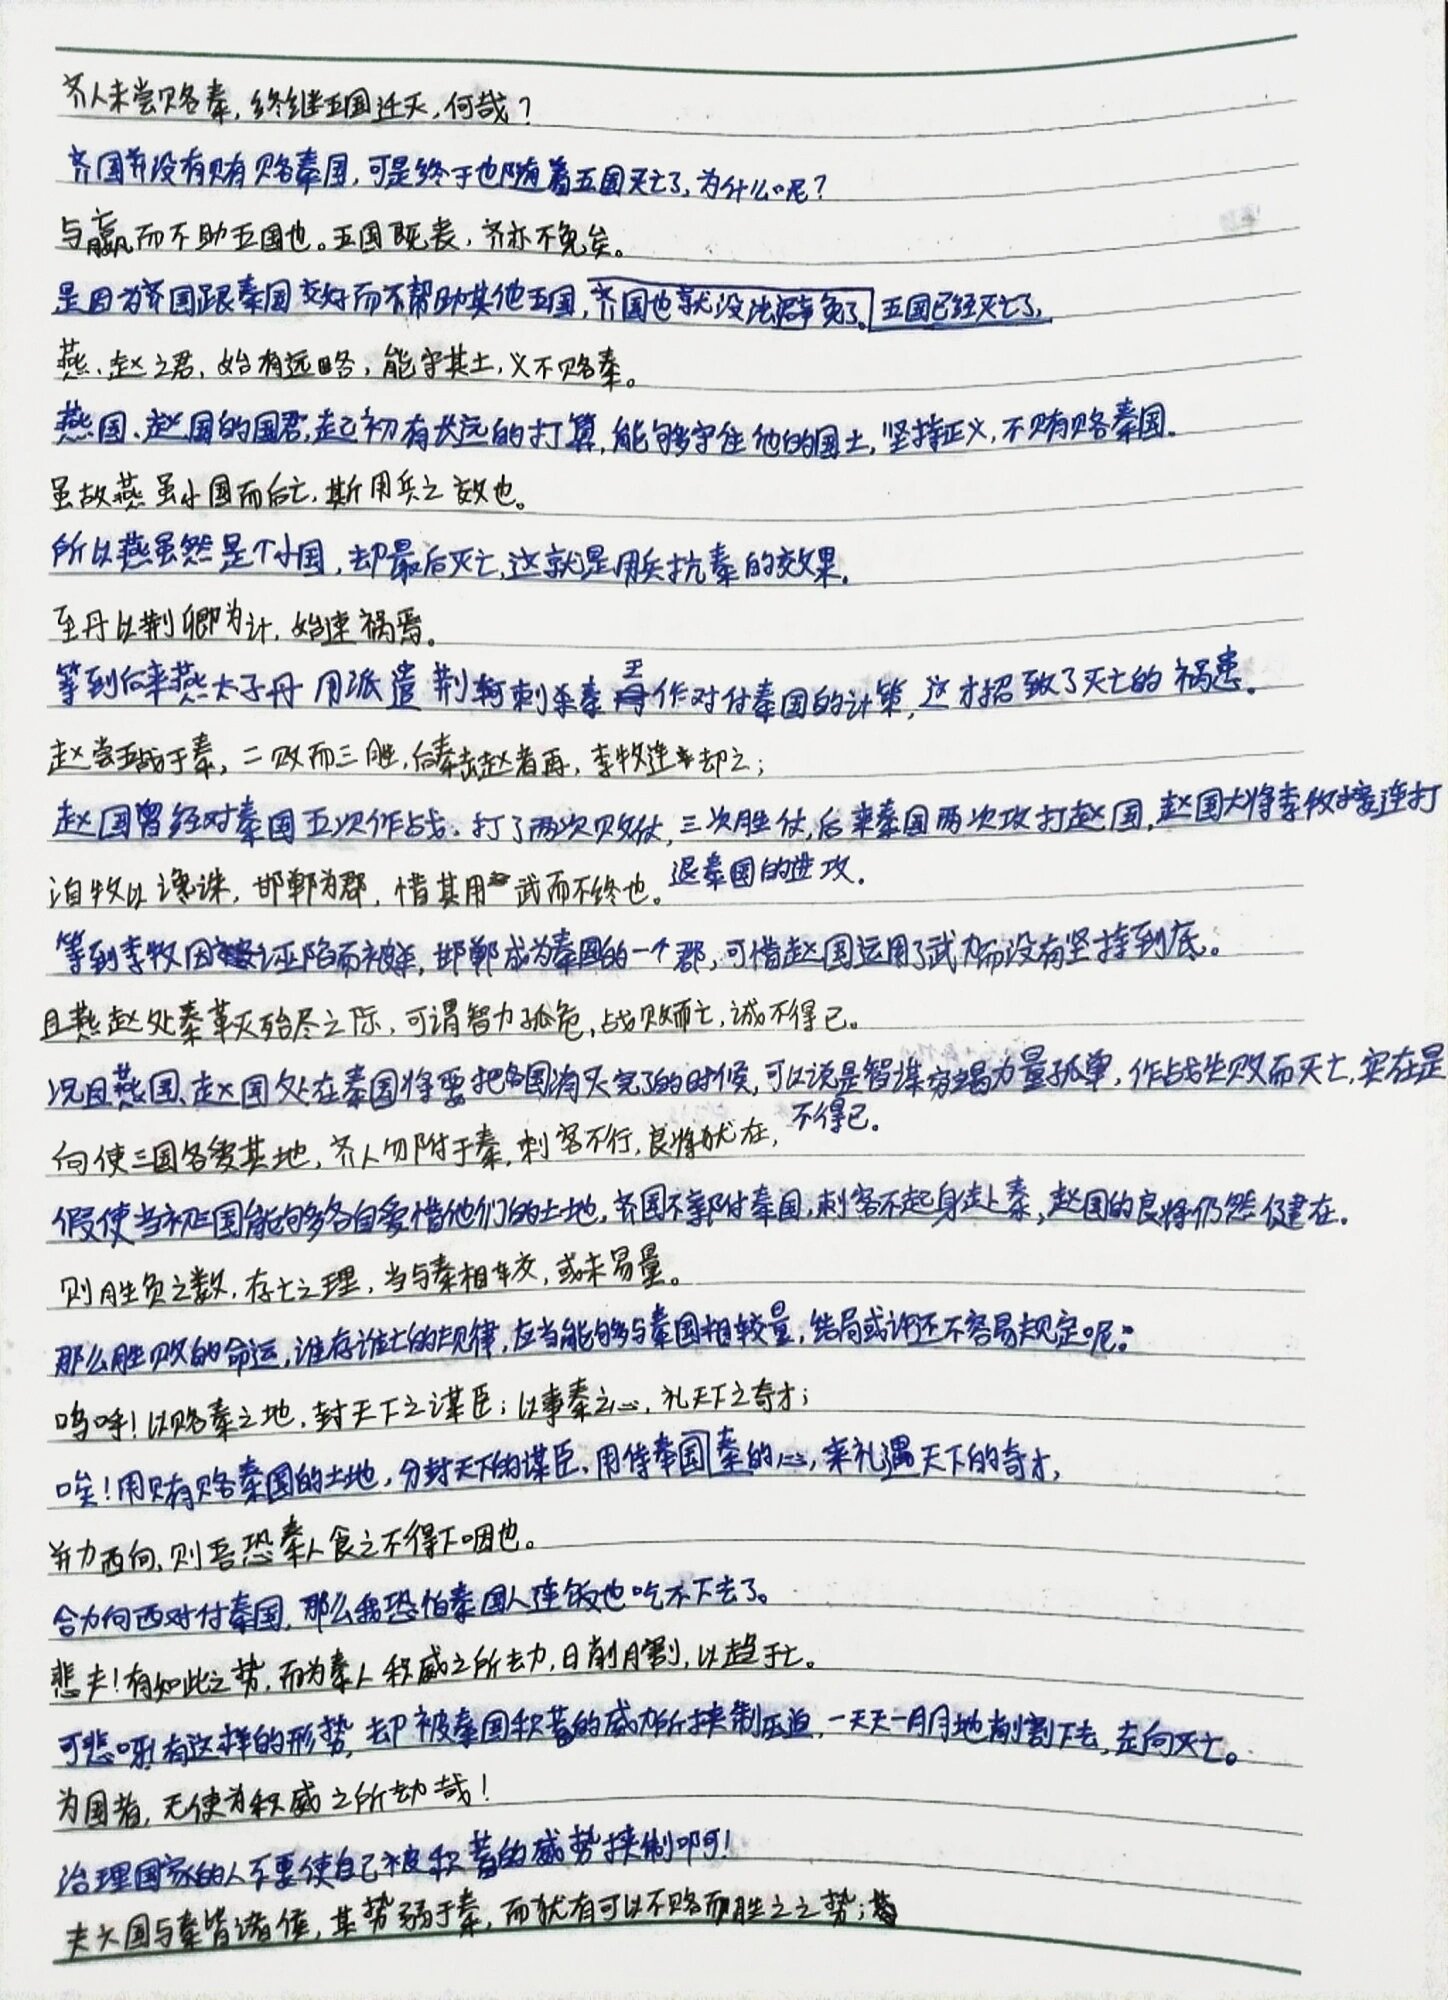 齐人未尝赂秦，终继五国迁灭，何哉？
齐国并没有贿赂秦国，可是终于也随着五国灭亡了，为什么呢？
与嬴而不助五国也。五国既丧，齐亦不免矣。
是因为齐国跟秦国交好而不帮助其他五国，齐国也就没法幸免了。五国已经灭亡了，
燕、赵之君，始有远略，能守其土，义不赂秦。
燕国、赵国的国君，起初有长远的打算，能够守住他的国土，坚持正义，不贿赂秦国。
虽故燕虽小国而后亡，斯用兵之效也。
所以燕虽然是个小国，却最后灭亡，这就是用兵抗秦的效果。
至丹以荆卿为计，始速祸焉。
等到后来燕太子丹用派遣荆轲刺杀秦王作对付秦国的计策，这才招致了灭亡的祸患。
赵尝五战于秦，二败而三胜，后秦击赵者再，李牧连却之；
赵国曾经对秦国五次作战，打了两次败仗，三次胜仗，后来秦国两次攻打赵国，赵国大将李牧接连打
退秦国的进攻。
洎牧以谗诛，邯郸为郡，惜其用武而不终也。
等到李牧因诬陷而被杀，邯郸成为秦国的一个郡，可惜赵国运用了武力而没有坚持到底。
且燕赵处秦革灭殆尽之际，可谓智力孤危，战败而亡，诚不得已。
况且燕国、赵国处在秦国将要把各国消灭完了的时候，可以说是智谋穷竭力量孤单，作战失败而灭亡，实在是
不得已。
向使三国各爱其地，齐人勿附于秦，刺客不行，良将犹在，
假使当初三国能够各自爱惜他们的土地，齐国不附秦国，刺客不起身赴秦，赵国的良将仍然健在。
则胜负之数，存亡之理，当与秦相较，或未易量。
那么胜败的命运，谁存谁亡的规律，应当能够与秦国相较量，结局或许还不容易规定呢。
呜呼！以赂秦之地，封天下之谋臣；以事秦之心，礼天下之奇才；
唉！用贿赂秦国的土地，分封天下的谋臣、用侍奉国秦的心，来礼遇天下的奇才，
并力西向，则吾恐秦人食之不得下咽也。
合力向西对付秦国，那么我恐怕秦国人连饭也吃不下去了。
悲夫！有如此之势，而为秦人积威之所劫，日削月割，以趋于亡。
可悲呀！有这样的形势，却被秦国积蓄的威力所挟制压迫，一天天一月月地削割下去，走向灭亡。
为国者，无使为积威之所劫哉！
治理国家的人不要使自己被积蓄的威势挟制啊！
夫六国与秦皆诸侯，其势弱于秦，而犹有可以不赂而胜之之势；